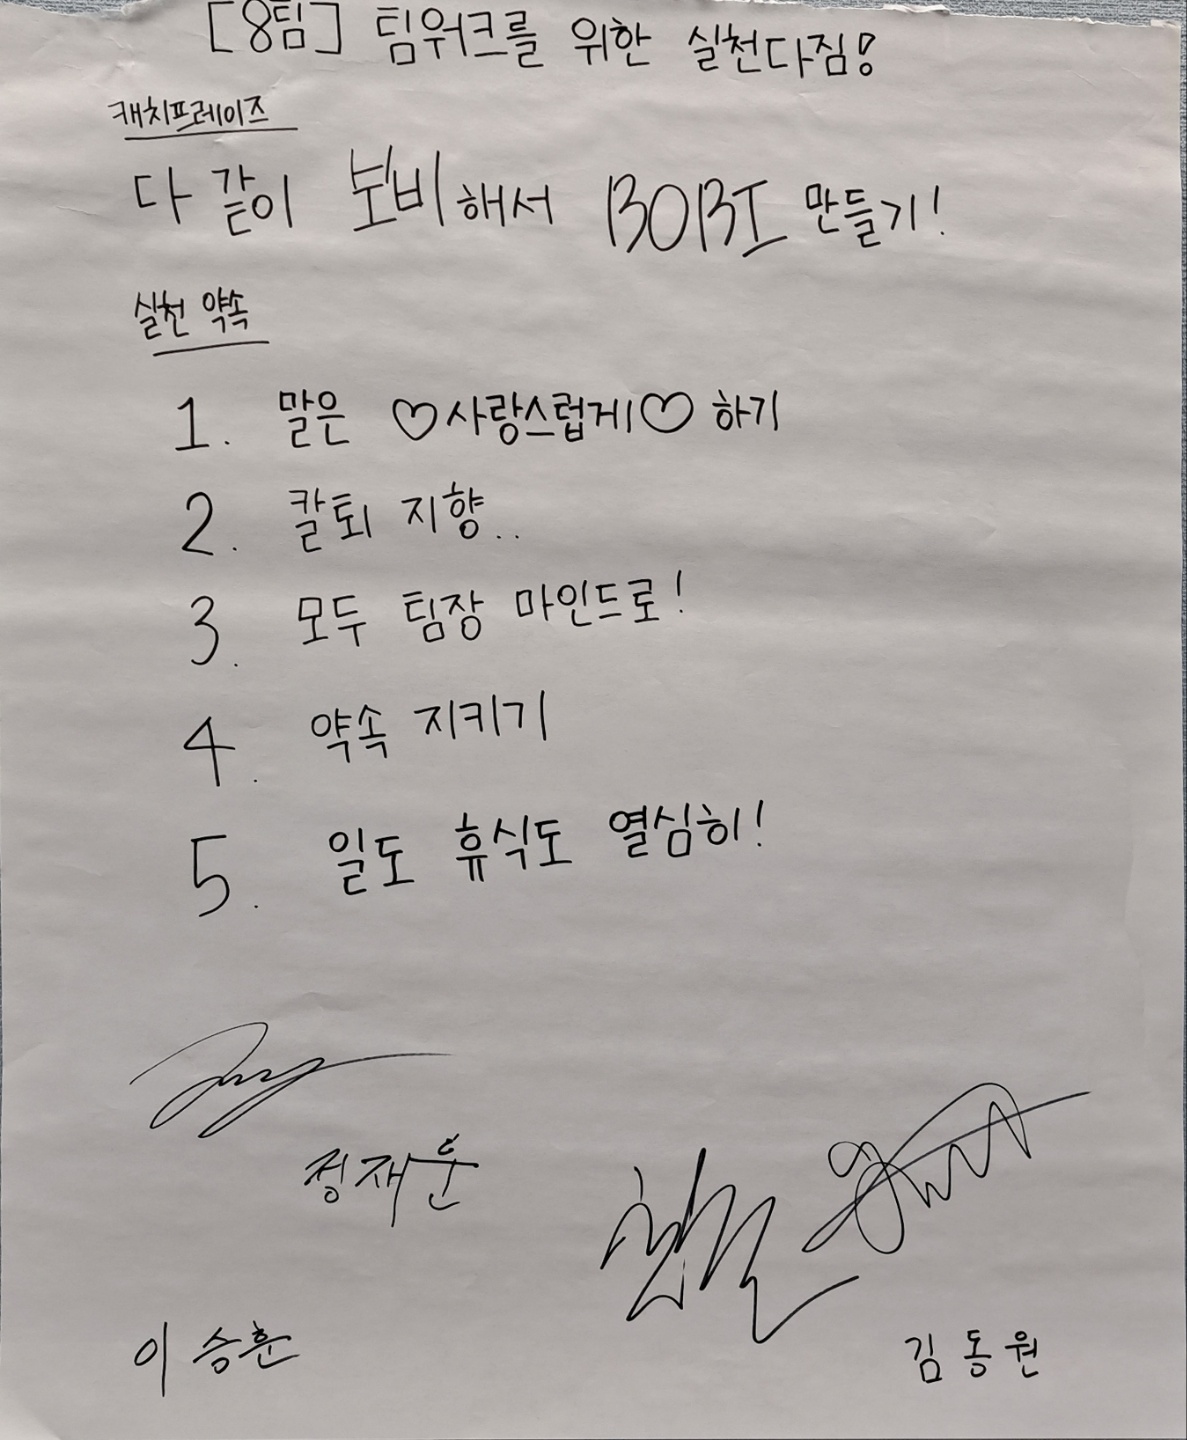 [8팀] 팀워크를 위한 실천다짐!
캐치프레이즈
다 같이 보비해서 BOBI 만들기!
실천 약속
1. 말은 ♡사랑스럽게♡ 하기
2. 칼퇴 지향..
3. 모두 팀장 마인드로!
4. 약속 지키기
5. 일도 휴식도 열심히!
정재훈
이승훈
김동원